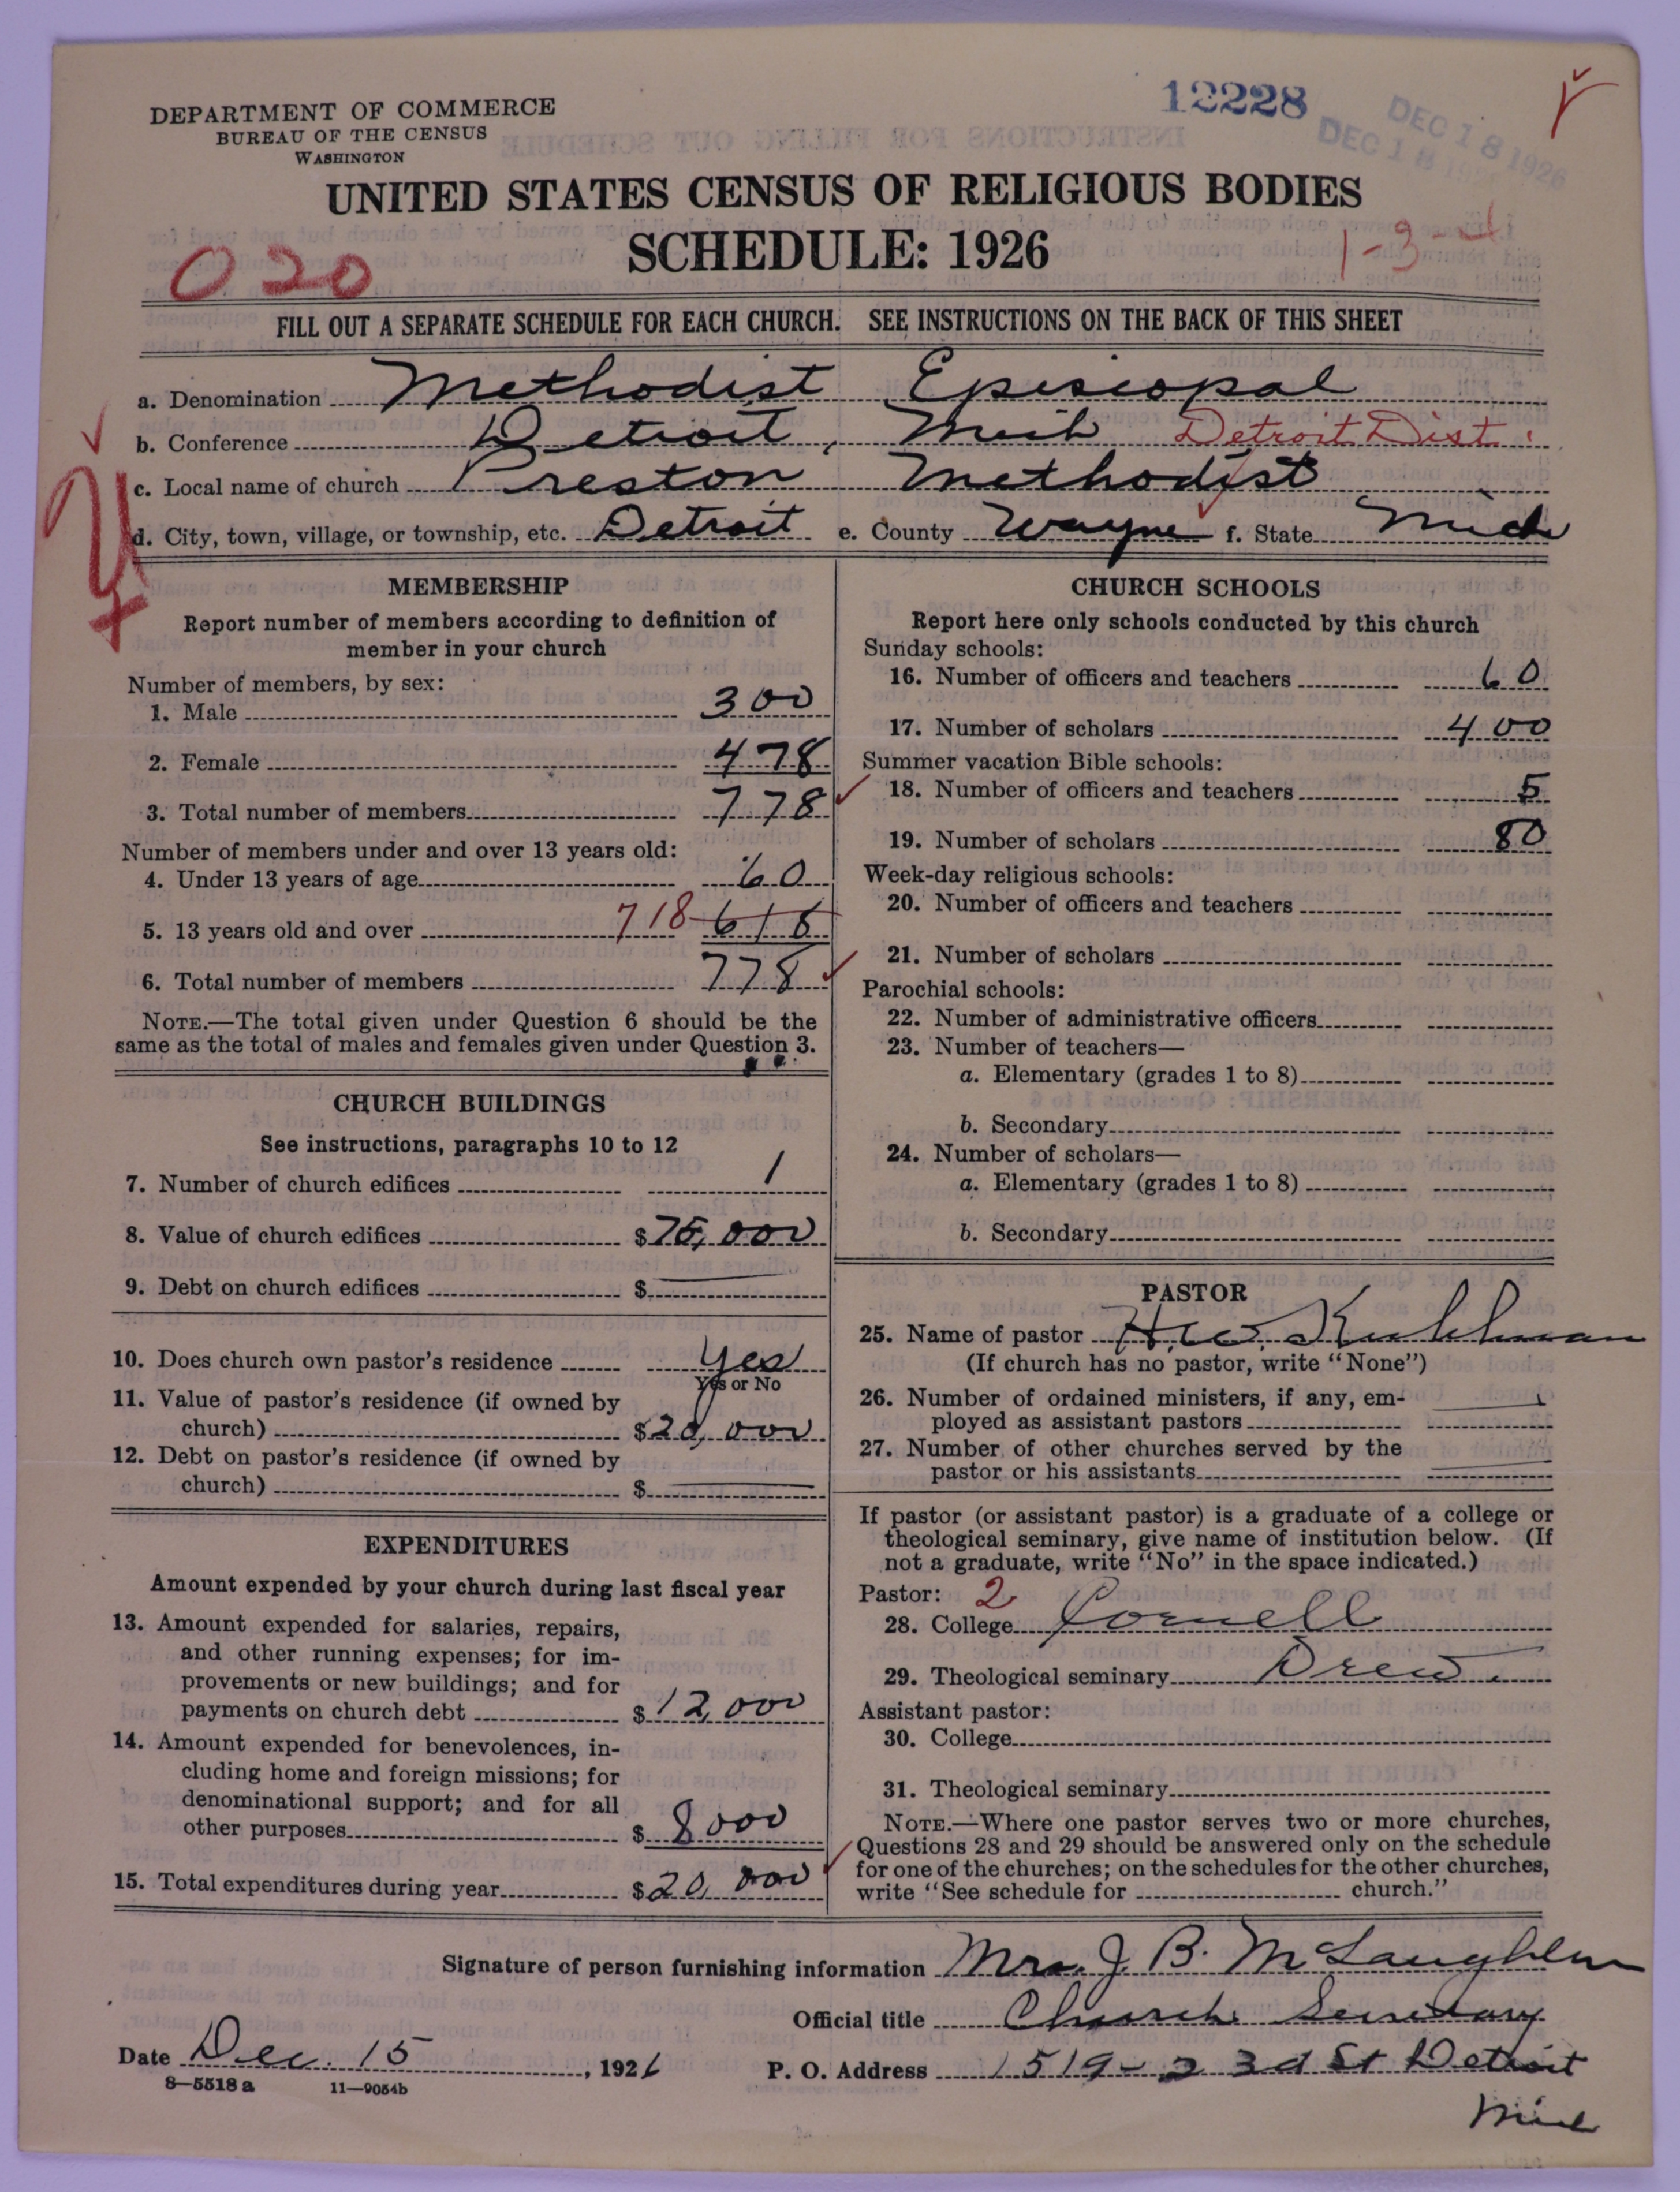 DEPARTMENT OF COMMERCE
BUREAU OF THE CENSUS
WASHINGTON
12228
DEC 18 1926
DEC 18 192
UNITED STATES CENSUS OF RELIGIOUS BODIES
SCHEDULE: 1926
020
1-3-4
FILL OUT A SEPARATE SCHEDULE FOR EACH CHURCH. SEE INSTRUCTIONS ON THE BACK OF THIS SHEET
a. Denomination Methodist Episcopal
b. Conference Detroit, Mich Detroit Dist.
c. Local name of church Preston Methodist
d. City, town, village, or township, etc. Detroit e. County Wayne f. State Mich
MEMBERSHIP
Report number of members according to definition of
member in your church
Number of members, by sex:
1. Male 300
2. Female 478
3. Total number of members 778
Number of members under and over 13 years old:
4. Under 13 years of age 60
5. 13 years old and over 718 618
6. Total number of members 778
NOTE.—The total given under Question 6 should be the
same as the total of males and females given under Question 3.
CHURCH BUILDINGS
See instructions, paragraphs 10 to 12
7. Number of church edifices 1
8. Value of church edifices $75,000
9. Debt on church edifices $
10. Does church own pastor's residence Yes
Yes or No
11. Value of pastor's residence (if owned by
church) $20,000
12. Debt on pastor's residence (if owned by
church) $
EXPENDITURES
Amount expended by your church during last fiscal year
13. Amount expended for salaries, repairs,
and other running expenses; for im-
provements or new buildings; and for
payments on church debt $12,000
14. Amount expended for benevolences, in-
cluding home and foreign missions; for
denominational support; and for all
other purposes $8000
15. Total expenditures during year $20,000
CHURCH SCHOOLS
Report here only schools conducted by this church
Sunday schools:
16. Number of officers and teachers 60
17. Number of scholars 400
Summer vacation Bible schools:
18. Number of officers and teachers 5
19. Number of scholars 80
Week-day religious schools:
20. Number of officers and teachers
21. Number of scholars
Parochial schools:
22. Number of administrative officers
23. Number of teachers—
a. Elementary (grades 1 to 8)
b. Secondary
24. Number of scholars—
a. Elementary (grades 1 to 8)
b. Secondary
PASTOR
25. Name of pastor H. W. Kuhlman
(If church has no pastor, write "None")
26. Number of ordained ministers, if any, em-
ployed as assistant pastors
27. Number of other churches served by the
pastor or his assistants
If pastor (or assistant pastor) is a graduate of a college or
theological seminary, give name of institution below. (If
not a graduate, write "No" in the space indicated.)
Pastor: 2
28. College Cornell
29. Theological seminary Drew
Assistant pastor:
30. College
31. Theological seminary
NOTE.—Where one pastor serves two or more churches,
Questions 28 and 29 should be answered only on the schedule
for one of the churches; on the schedules for the other churches,
write "See schedule for church."
Signature of person furnishing information Mrs. J. B. McLaughlin
Official title Church Secretary
Date Dec. 15, 1926 P. O. Address 1519-23d St Detroit
Mich
8—5518a 11—9054b